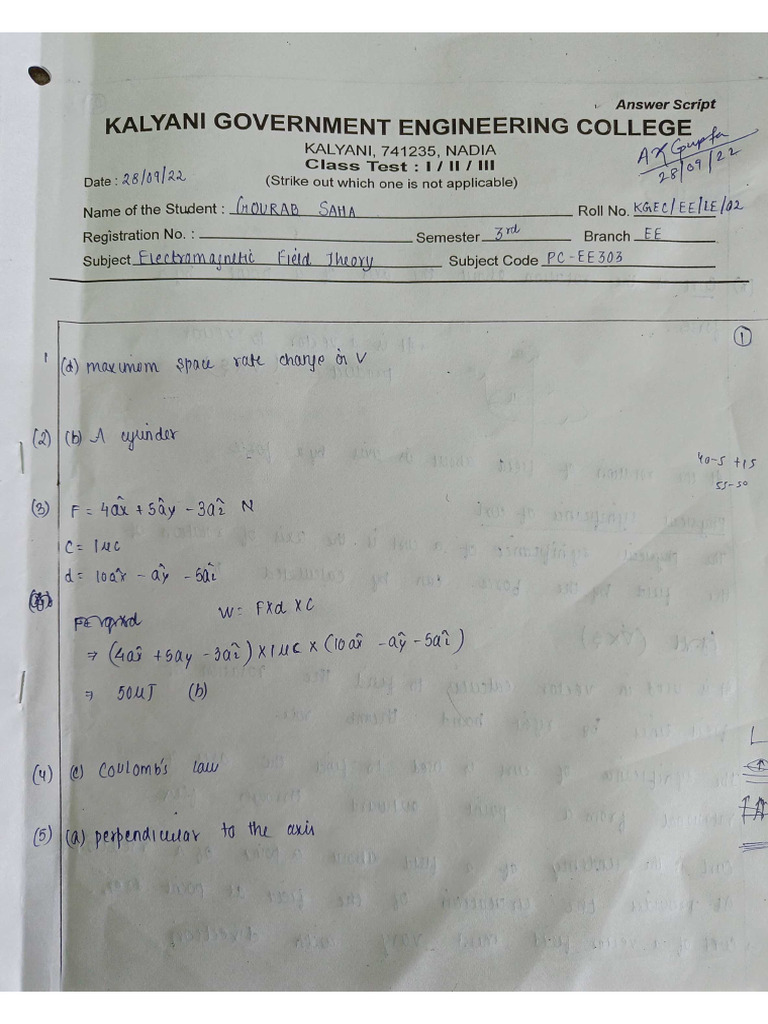 Answer Script
KALYANI GOVERNMENT ENGINEERING COLLEGE
KALYANI, 741235, NADIA
Class Test : I / II / III
(Strike out which one is not applicable)
AK Gupta
28/09/22
Date : 28/09/22
Name of the Student : GOURAB SAHA Roll No. KGEC/EE/LE/02
Registration No. : Semester 3rd Branch EE
Subject Electromagnetic Field Theory Subject Code PC-EE303
1
1 (d) maximum space rate change in V
(2) (b) A cylinder
40-5 +15
55-50
(3) F = 4ax̂ + 5ây - 3aẑ N
C = 1μc
d = 10ax̂ - aŷ - 5aẑ
W = F×d×C
⇒ (4ax̂ + 5ay - 3aẑ) × 1μc × (10ax̂ - aŷ - 5aẑ)
⇒ 50μJ (b)
(4) (c) Coulomb's law
(5) (a) perpendicular to the axis